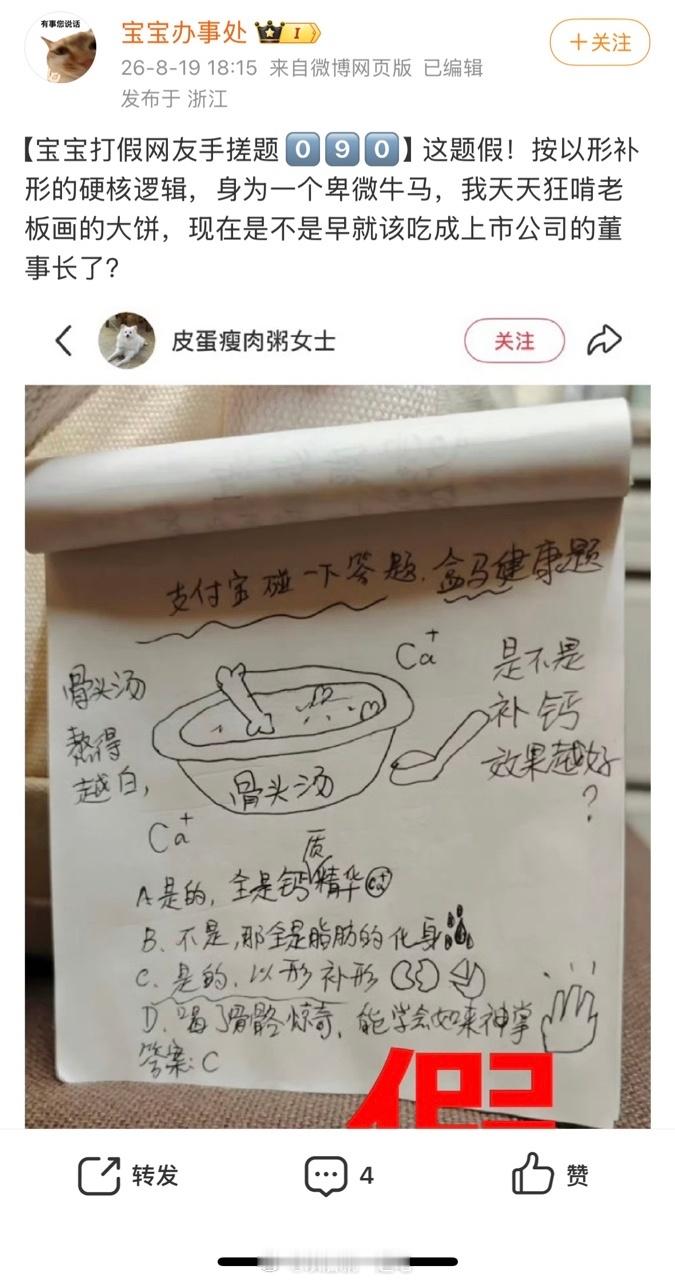 有事您说话
宝宝办事处 I
+关注
26-8-19 18:15 来自微博网页版 已编辑
发布于 浙江
【宝宝打假网友手搓题090】这题假！按以形补
形的硬核逻辑，身为一个卑微牛马，我天天狂啃老
板画的大饼，现在是不是早就该吃成上市公司的董
事长了？
皮蛋瘦肉粥女士
关注
支付宝碰一下答题.盒马健康题
骨头汤
熬得
越白，
Ca+
是不是
补钙
效果越好
？
骨头汤
Ca+
质
A 是的，全是钙精华 Ca+
B. 不是，那全是脂肪的化身
C. 是的，以形补形
D. 喝了骨骼惊奇，能学会如来神掌
答案：C
假
转发
4
赞